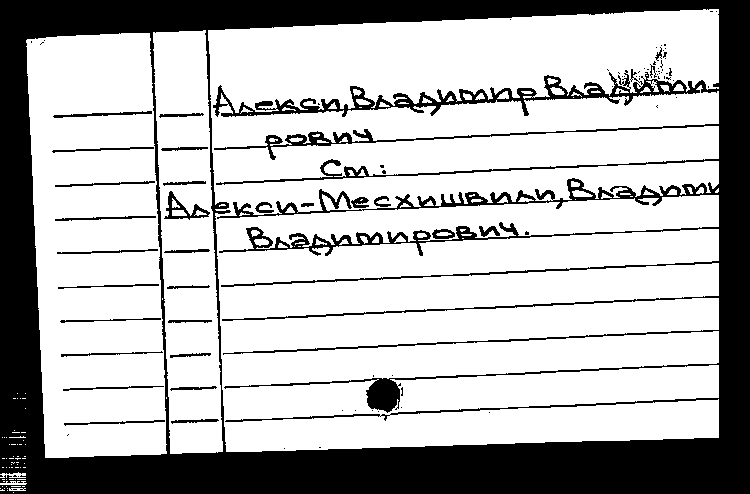 Алекси, Владимир Владими-
рович
См:
Алекси-Месхишвили, Владими
Владимирович.